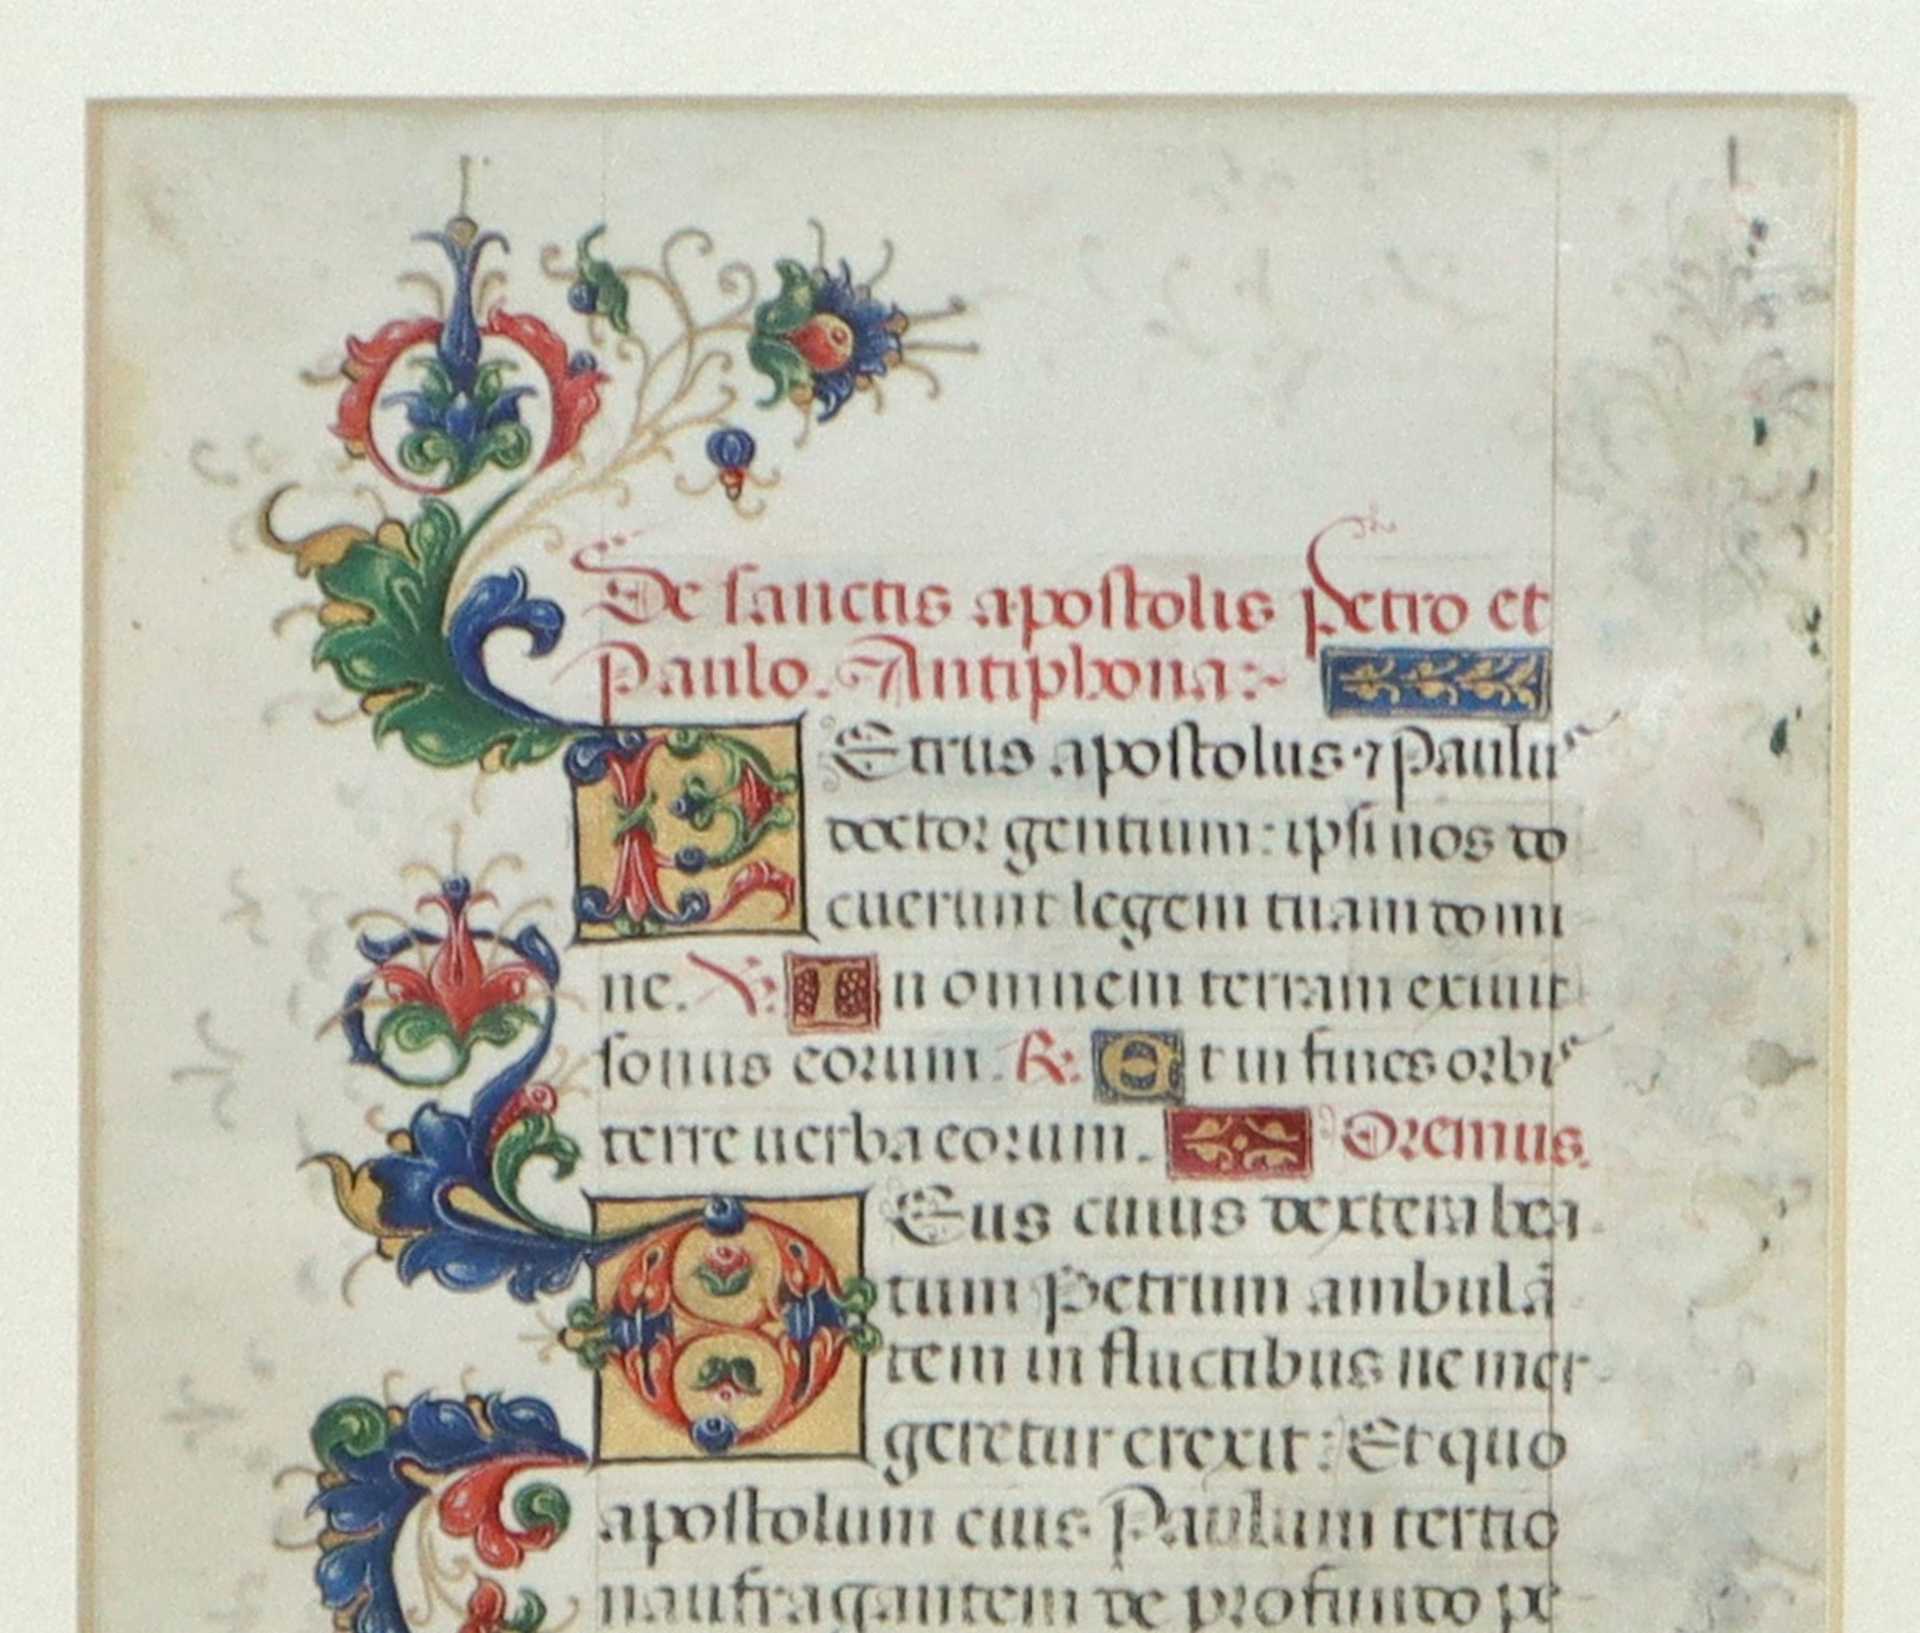 De sanctis apostolis Petro et
Paulo. Antiphona:~
PEtrus apostolus ⁊ Paulus
doctor gentium: ipsi nos do
cuerunt legem tuam domi
ne. ℣: In omnem terram exiuit
sonus eorum. ℟: Et in fines orbis
terre uerba eorum. Oremus.
DEus cuius dextera bea
tum Petrum ambulā
tem in fluctibus ne mer
geretur erexit: Et quo
apostolum eius Paulum tertio
naufragantem de profundo pe